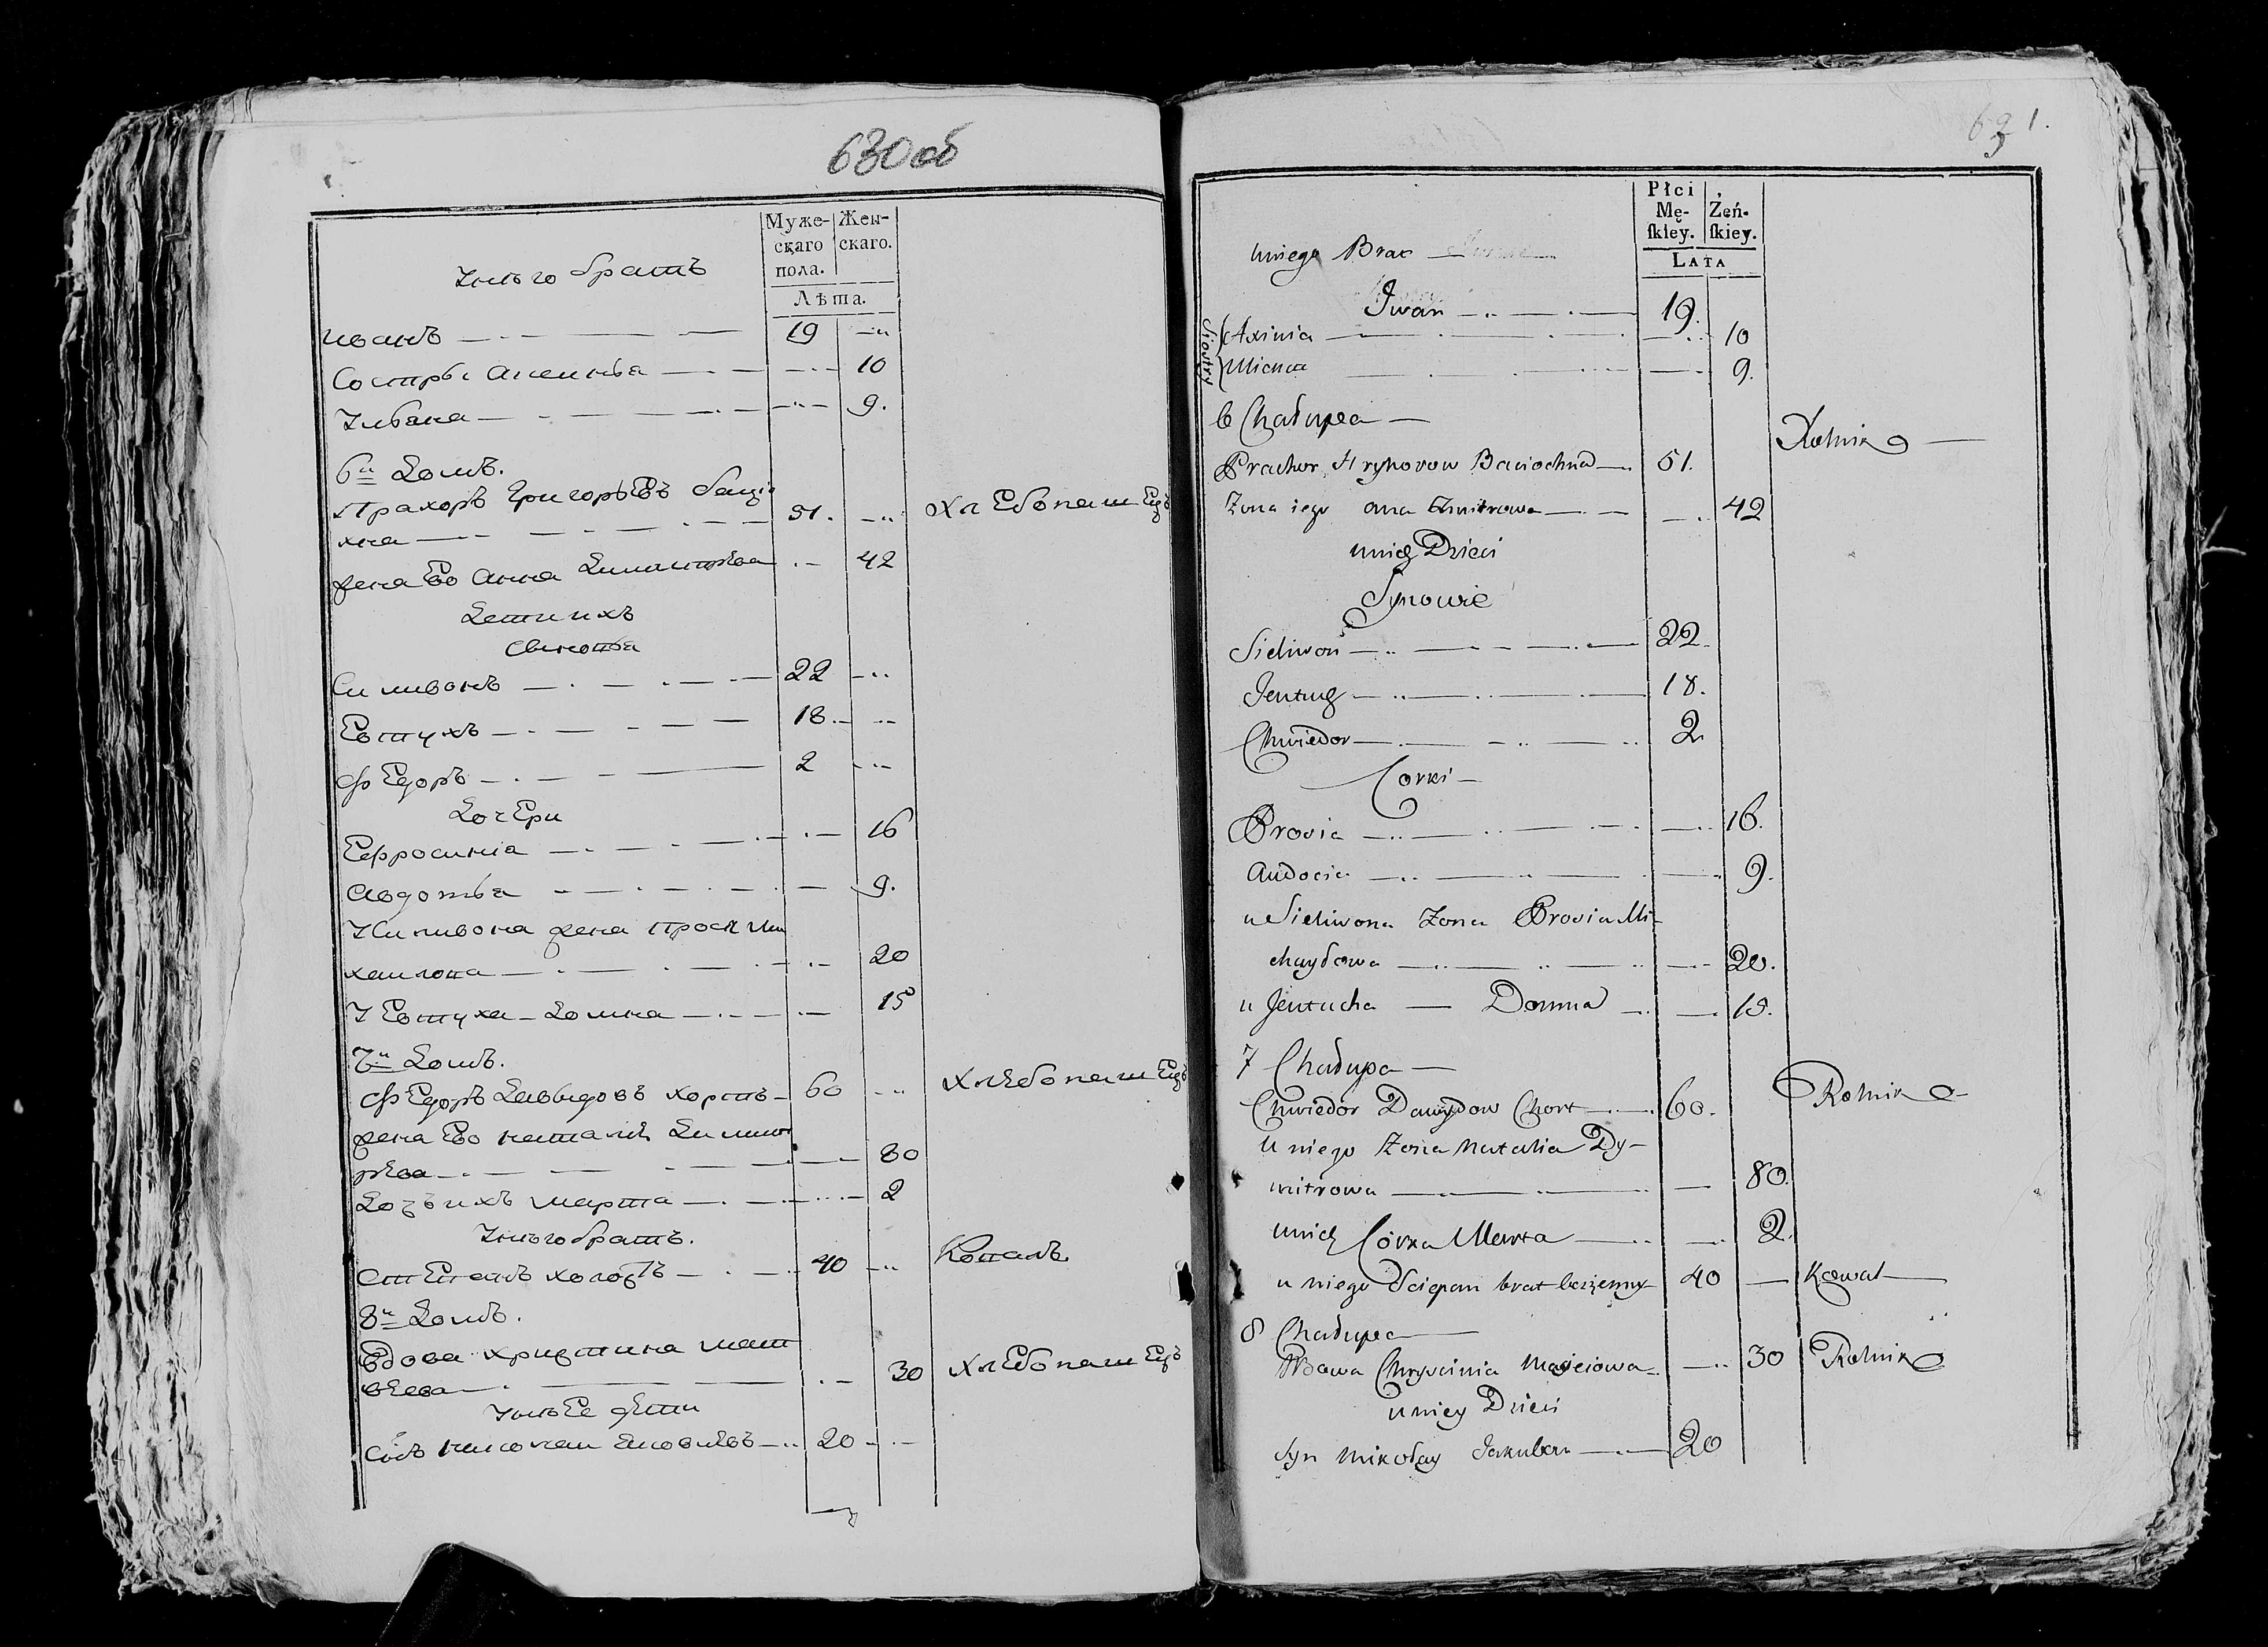 630об
Муже-
скаго
пола.
Жен-
скаго.
Лѣта.
У него братъ
Иванъ 19
Состры Аксинья 10
Ульяна 9.
6й Домъ.
Прахоръ Григорьевъ
51. Хлебопашецъ
жена Ево Анна Дмитрева 42
Дети ихъ
Сыновья
Силивонъ 22
Евтухъ 18
Федоръ 2
Дочери
Ефросинiа 16
Авдотья 9.
У Силивона жена Ми
хаилова 20
У Евтуха Домна 15
7й Домъ.
Федоръ Давыдовъ Хортъ 60 Хлебопашецъ
жена Ево Наталiя Димит
рева 80
Дочь ихъ Марта 2
У него братъ.
Степанъ холостъ 40 Коваль
8й Домъ.
Вдова Христина Мат
веева 30 Хлебопашецъ
У нее дети
Сынъ Николаи Яковлевъ 20
631.
Płci
Mę-
ſkiey.
Żeń-
ſkiey.
LATA
u niego Brat
Iwan 19.
Siostry
Axinia 10
9.
6 Chałupa
Prachor Hryhorow 51. Rolnik
Żona iego Ana Dmitrowa 42
u nich Dzieci
Synowie
Sieliwon 22.
Jeutuch 18.
Chwiedor 2
Corki
Prosia 16.
Audocia 9.
u Sieliwona Żona Prosia Mi-
chayłowa 20.
u Jeutucha Domna 15.
7 Chałupa
Chwiedor Dawydow Chort 60. Rolnik
U niego Żona Natalia Dy-
mitrowa 80.
u nich Córka Marta 2.
u niego Sciepan brat bezżenny 40 Kowal
8 Chałupa
Wdowa Chryscinia Maciejowa 30 Rolnik
u niey Dzieci
Syn Mikołay Jakubow 20